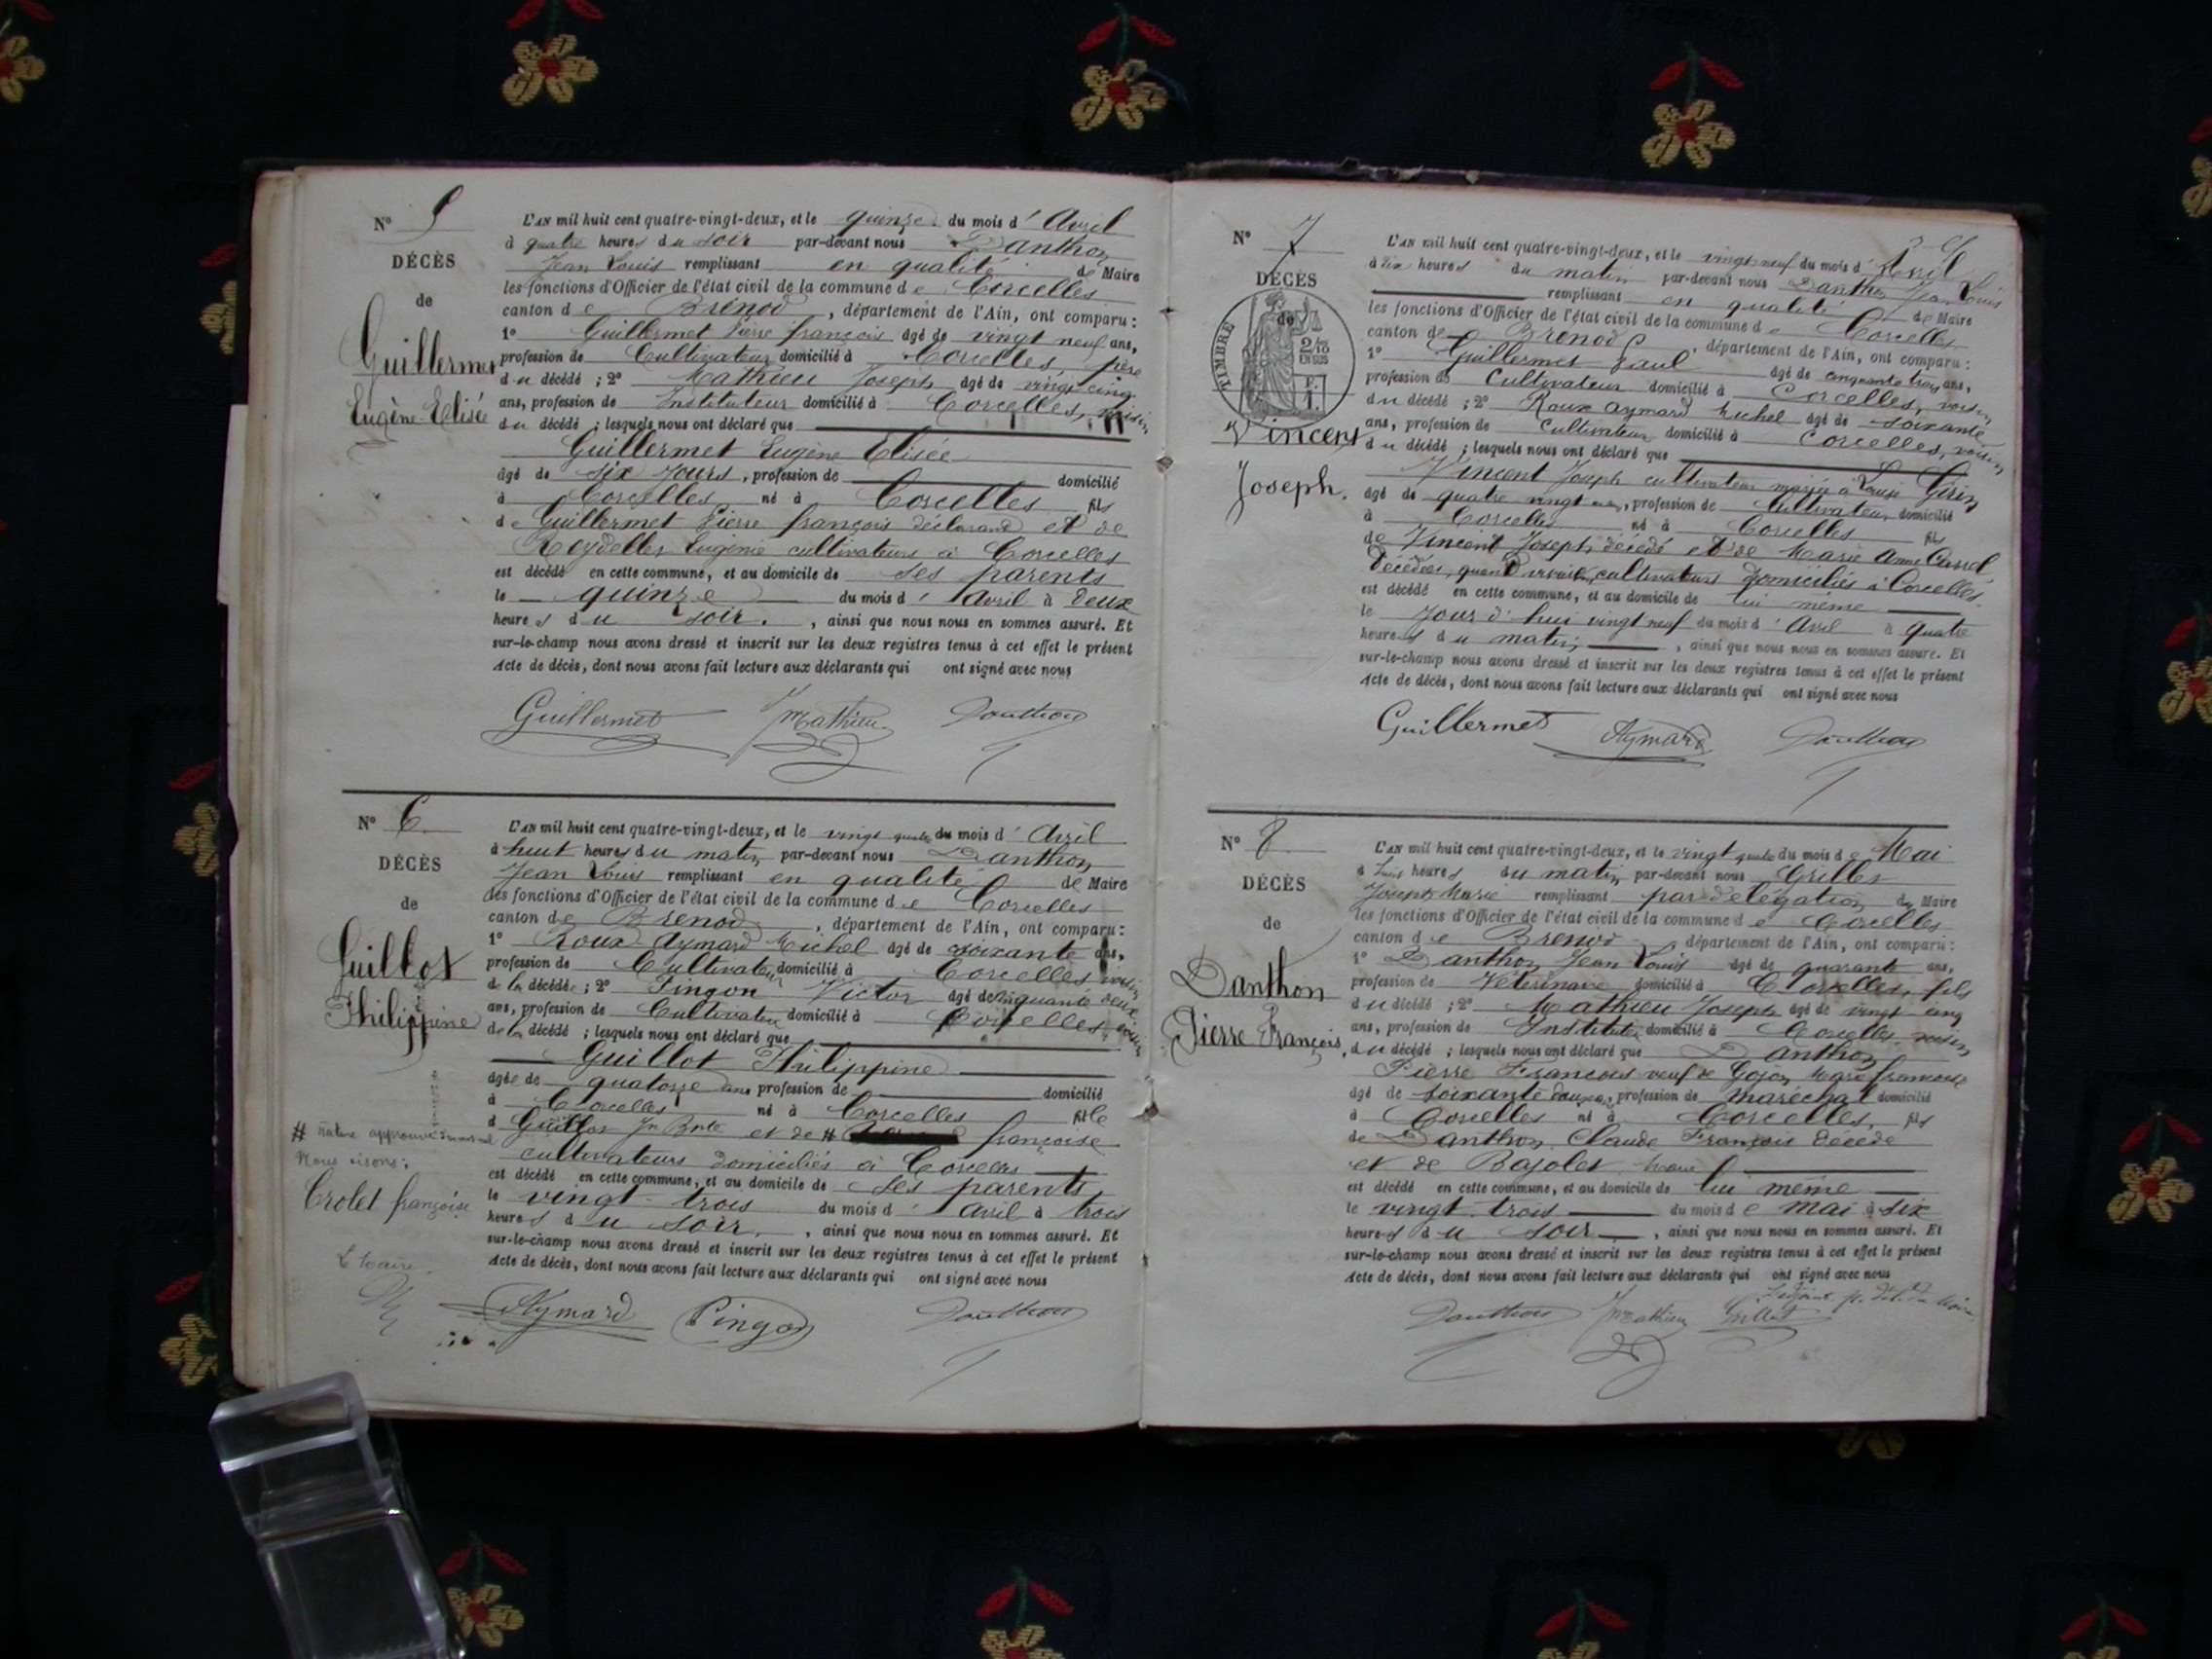 N° 5
DÉCÈS
de
Guillermet
Eugène Elisée
L'AN mil huit cent quatre-vingt-deux, et le quinze du mois d' Avril
à quatre heures du soir par-devant nous Danthon
Jean Louis remplissant en qualité de Maire
les fonctions d'Officier de l'état civil de la commune de Corcelles
canton de Brenod, département de l'Ain, ont comparu :
1° Guillermet Pierre françois âgé de vingt neuf ans,
profession de Cultivateur domicilié à Corcelles père
du décédé ; 2° Mathieu Joseph âgé de vingt cinq
ans, profession de Instituteur domicilié à Corcelles, voisin
du décédé ; lesquels nous ont déclaré que
Guillermet Eugène Elisée
âgé de six jours, profession de domicilié
à Corcelles né à Corcelles fils
de Guillermet Pierre françois déclarant et de
Reydellet Eugénie cultivateurs à Corcelles
est décédé en cette commune, et au domicile de ses parents
le quinze du mois d' Avril à deux
heures du soir. , ainsi que nous nous en sommes assuré. Et
sur-le-champ nous avons dressé et inscrit sur les deux registres tenus à cet effet le présent
Acte de décès, dont nous avons fait lecture aux déclarants qui ont signé avec nous
Guillermet Mathieu Danthon
N° 6
DÉCÈS
de
Guillot
Philippine
L'AN mil huit cent quatre-vingt-deux, et le vingt quatre du mois d' Avril
à huit heures du matin par-devant nous Danthon
Jean Louis remplissant en qualité de Maire
les fonctions d'Officier de l'état civil de la commune de Corcelles
canton de Brenod, département de l'Ain, ont comparu :
1° Roux Aymard Michel âgé de soixante ans,
profession de Cultivateur domicilié à Corcelles voisin
de la décédée ; 2° Pingon Victor âgé de cinquante deux
ans, profession de Cultivateur domicilié à Corcelles, voisin
de la décédé ; lesquels nous ont déclaré que
Guillot Philippine
âgée de quatorze ans profession de domicilié
à Corcelles né à Corcelles fille
d Guillot Jn Bte et de # françoise
cultivateurs domiciliés à Corcelles
est décédé en cette commune, et au domicile de ses parents
le vingt-trois du mois d' Avril à trois
heures du soir, , ainsi que nous nous en sommes assuré. Et
sur-le-champ nous avons dressé et inscrit sur les deux registres tenus à cet effet le présent
Acte de décès, dont nous avons fait lecture aux déclarants qui ont signé avec nous
# rature approuvée
Nous disons :
Crolet françoise
Le Maire
Aymard Pingon Danthon
N° 7
DÉCÈS
de
TIMBRE
2/10
EN SUS
Vincent
Joseph.
L'AN mil huit cent quatre-vingt-deux, et le vingt neuf du mois d' Avril
à dix heures du matin par-devant nous Danthon Jean Louis
remplissant en qualité de Maire
les fonctions d'Officier de l'état civil de la commune de Corcelles
canton de Brenod, département de l'Ain, ont comparu :
1° Guillermet Paul âgé de cinquante trois ans,
profession de Cultivateur domicilié à Corcelles, voisin
du décédé ; 2° Roux Aymard Michel âgé de soixante
ans, profession de Cultivateur domicilié à Corcelles, voisin
du décédé ; lesquels nous ont déclaré que
Vincent Joseph cultivateur marié à Louise Girin
âgé de quatre vingt ans, profession de Cultivateur domicilié
à Corcelles né à Corcelles fils
de Vincent Joseph décédé et de Marie Anne
décédée, quand vivaient cultivateurs domiciliés à Corcelles.
est décédé en cette commune, et au domicile de lui même
le jour d'hui vingt neuf du mois d' Avril à quatre
heures du matin, , ainsi que nous nous en sommes assuré. Et
sur-le-champ nous avons dressé et inscrit sur les deux registres tenus à cet effet le présent
Acte de décès, dont nous avons fait lecture aux déclarants qui ont signé avec nous
Guillermet Aymard Danthon
N° 8
DÉCÈS
de
Danthon
Pierre François,
L'AN mil huit cent quatre-vingt-deux, et le vingt quatre du mois de Mai
à huit heures du matin par-devant nous Grillet
Joseph Marie remplissant par délégation du Maire
les fonctions d'Officier de l'état civil de la commune de Corcelles
canton de Brenod, département de l'Ain, ont comparu :
1° Danthon Jean Louis âgé de quarante ans,
profession de Vétérinaire domicilié à Corcelles, fils
du décédé ; 2° Mathieu Joseph âgé de vingt cinq
ans, profession de Instituteur domicilié à Corcelles, voisin
du décédé ; lesquels nous ont déclaré que Danthon
Pierre François veuf de Gojon Marie françoise
âgé de soixante douze ans, profession de maréchal domicilié
à Corcelles né à Corcelles, fils
de Danthon Claude François décédé
et de Bajolet Marie
est décédé en cette commune, et au domicile de lui même
le vingt trois du mois de mai à six
heures du soir , ainsi que nous nous en sommes assuré. Et
sur-le-champ nous avons dressé et inscrit sur les deux registres tenus à cet effet le présent
Acte de décès, dont nous avons fait lecture aux déclarants qui ont signé avec nous
Danthon Mathieu Grillet